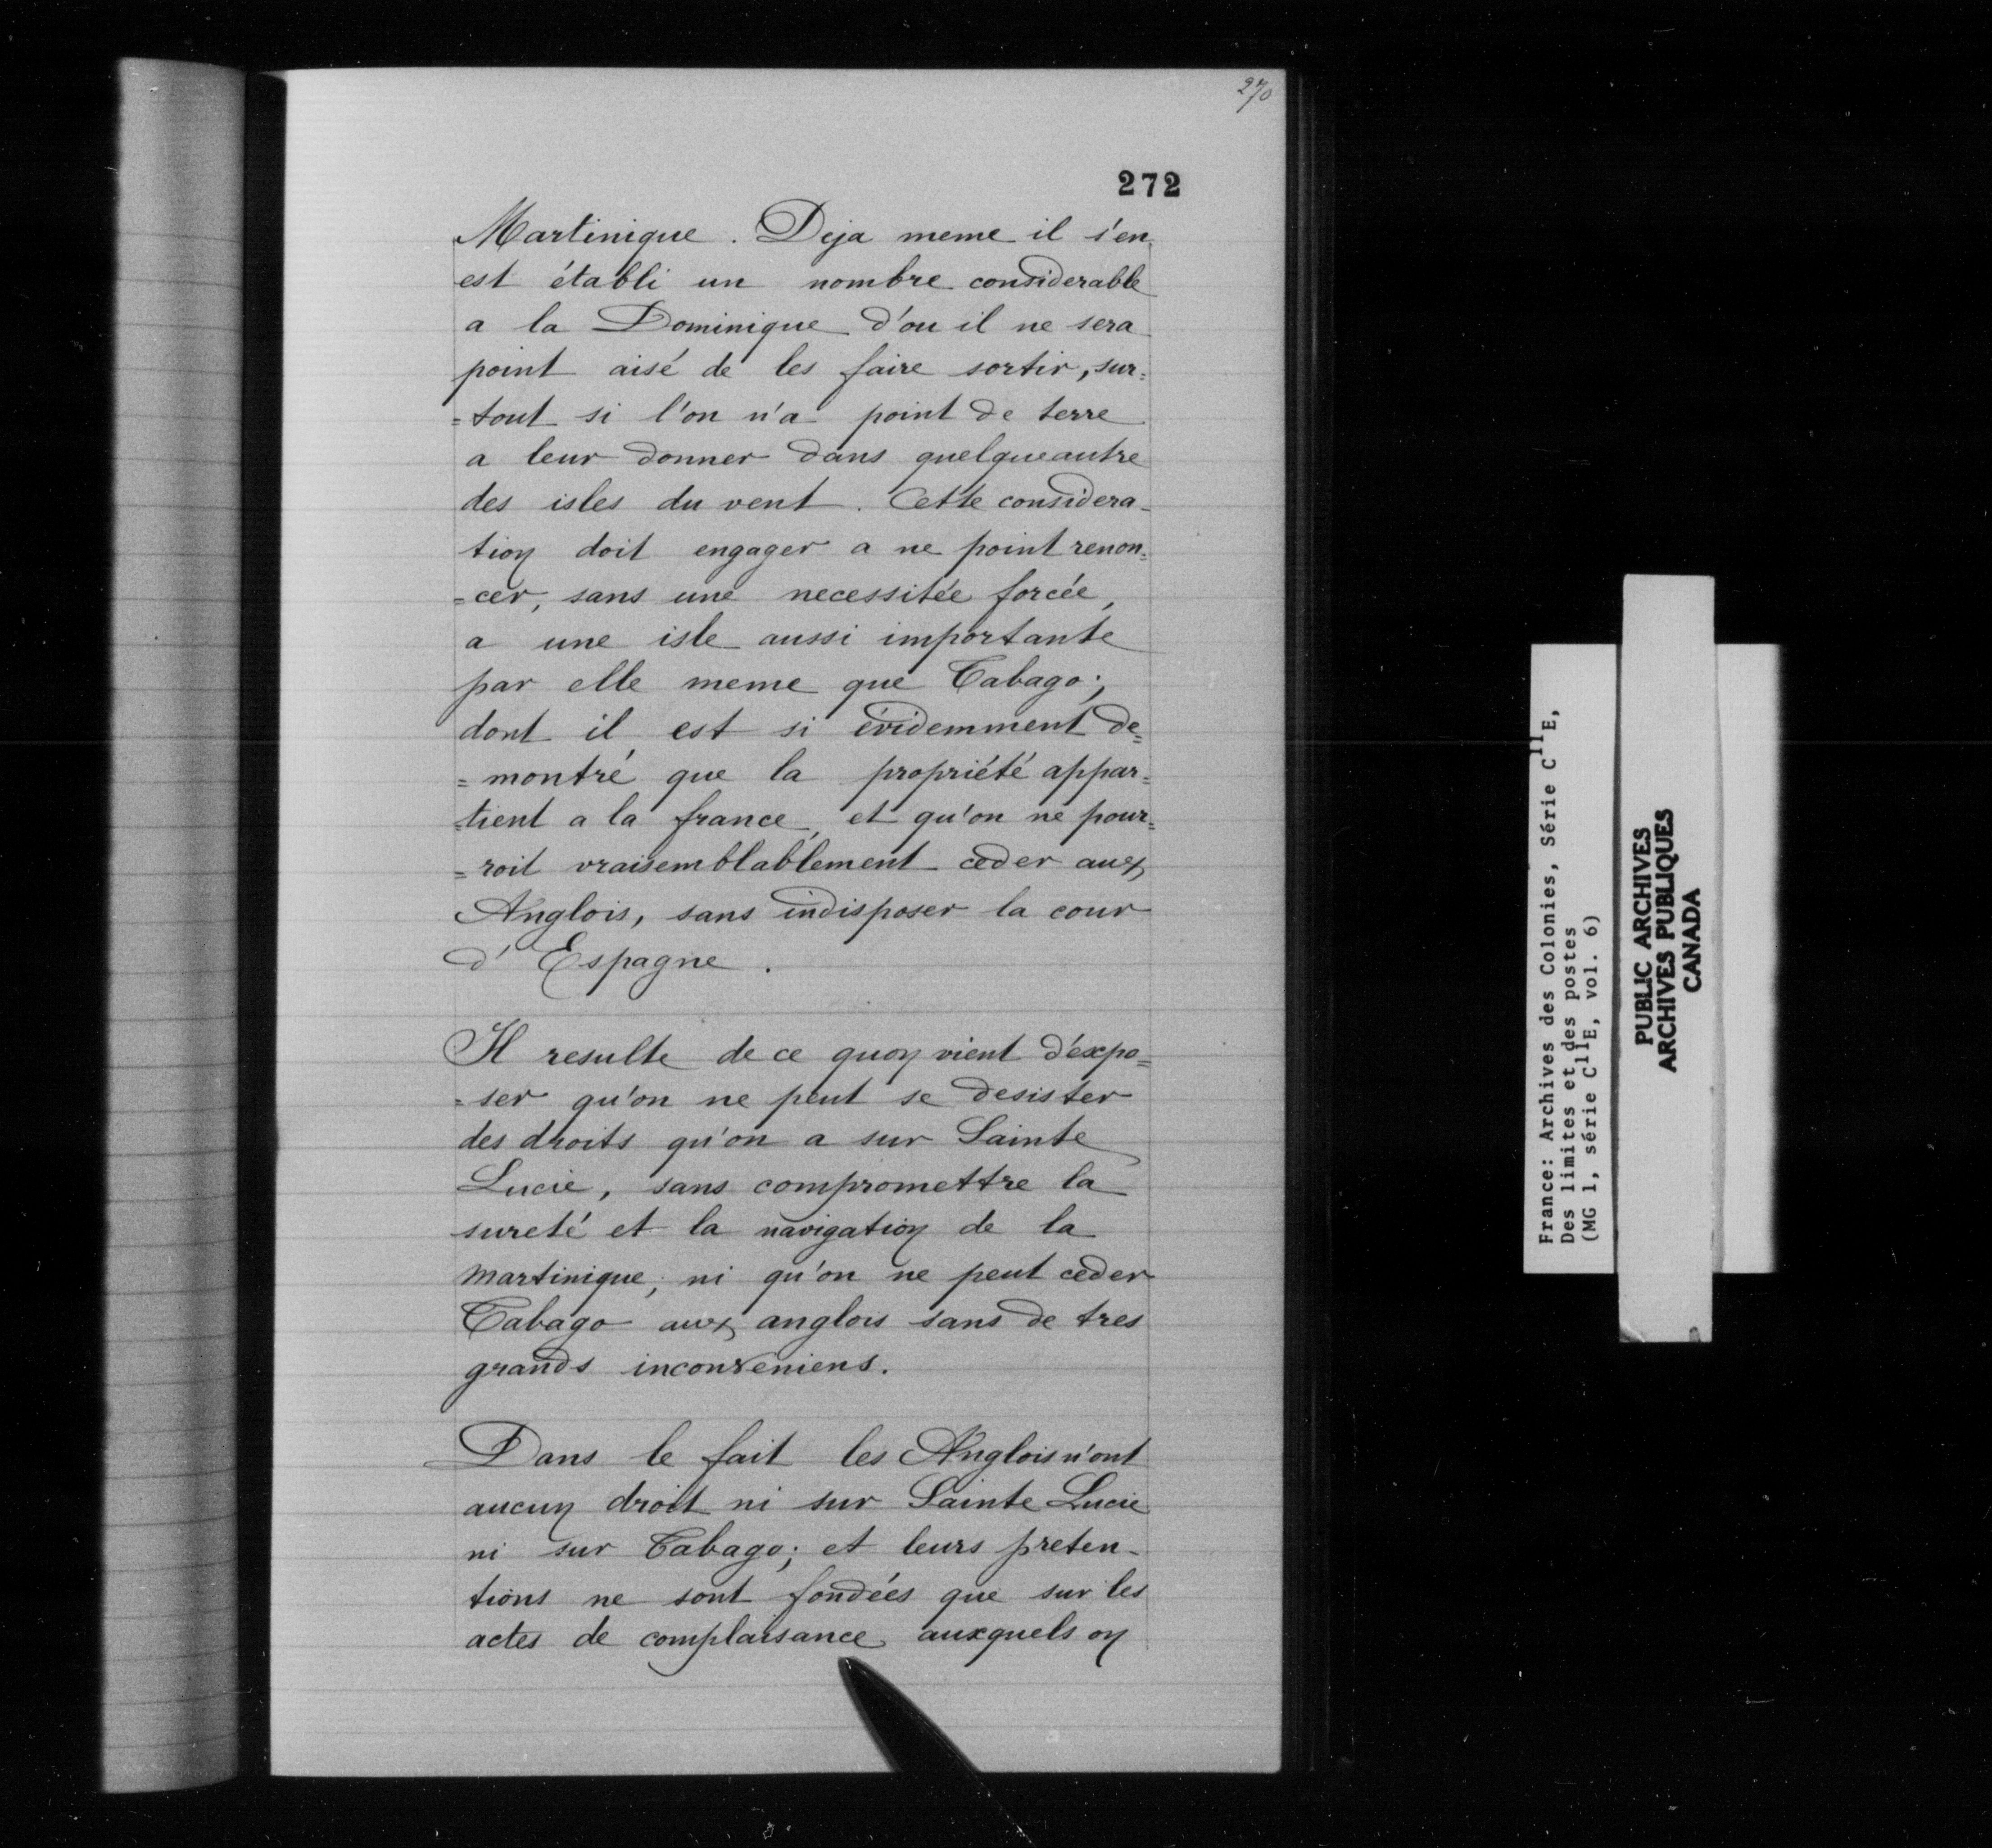 270
272
Martinique. Deja meme il s'en
est établi un nombre considerable
a la Dominique d'ou il ne sera
point aisé de les faire sortir, sur=
=tout si l'on n'a point de terre
a leur donner dans quelque autre
des isles du vent. Cette considera-
tion doit engager a ne point renon=
=cer, sans une necessitée forcée,
a une isle aussi importante
par elle meme que Tabago;
dont il est si évidemment de=
=montré que la propriété appar=
=tient a la france, et qu'on ne pour=
=roit vraisemblablement ceder aux
Anglois, sans indisposer la cour
d'Espagne.
Il resulte de ce quon vient d'expo=
=ser qu'on ne peut se desister
des droits qu'on a sur Sainte
Lucie, sans compromettre la
sureté et la navigation de la
martinique, ni qu'on ne peut ceder
Tabago aux anglois sans de tres
grands inconveniens.
Dans le fait les Anglois n'ont
aucun droit ni sur Sainte Lucie
ni sur Tabago; et leurs preten-
tions ne sont fondées que sur les
actes de complaisance auxquels on
France: Archives des Colonies, Série C11E,
Des limites et des postes
(MG 1, série C11E, vol. 6)
PUBLIC ARCHIVES
ARCHIVES PUBLIQUES
CANADA